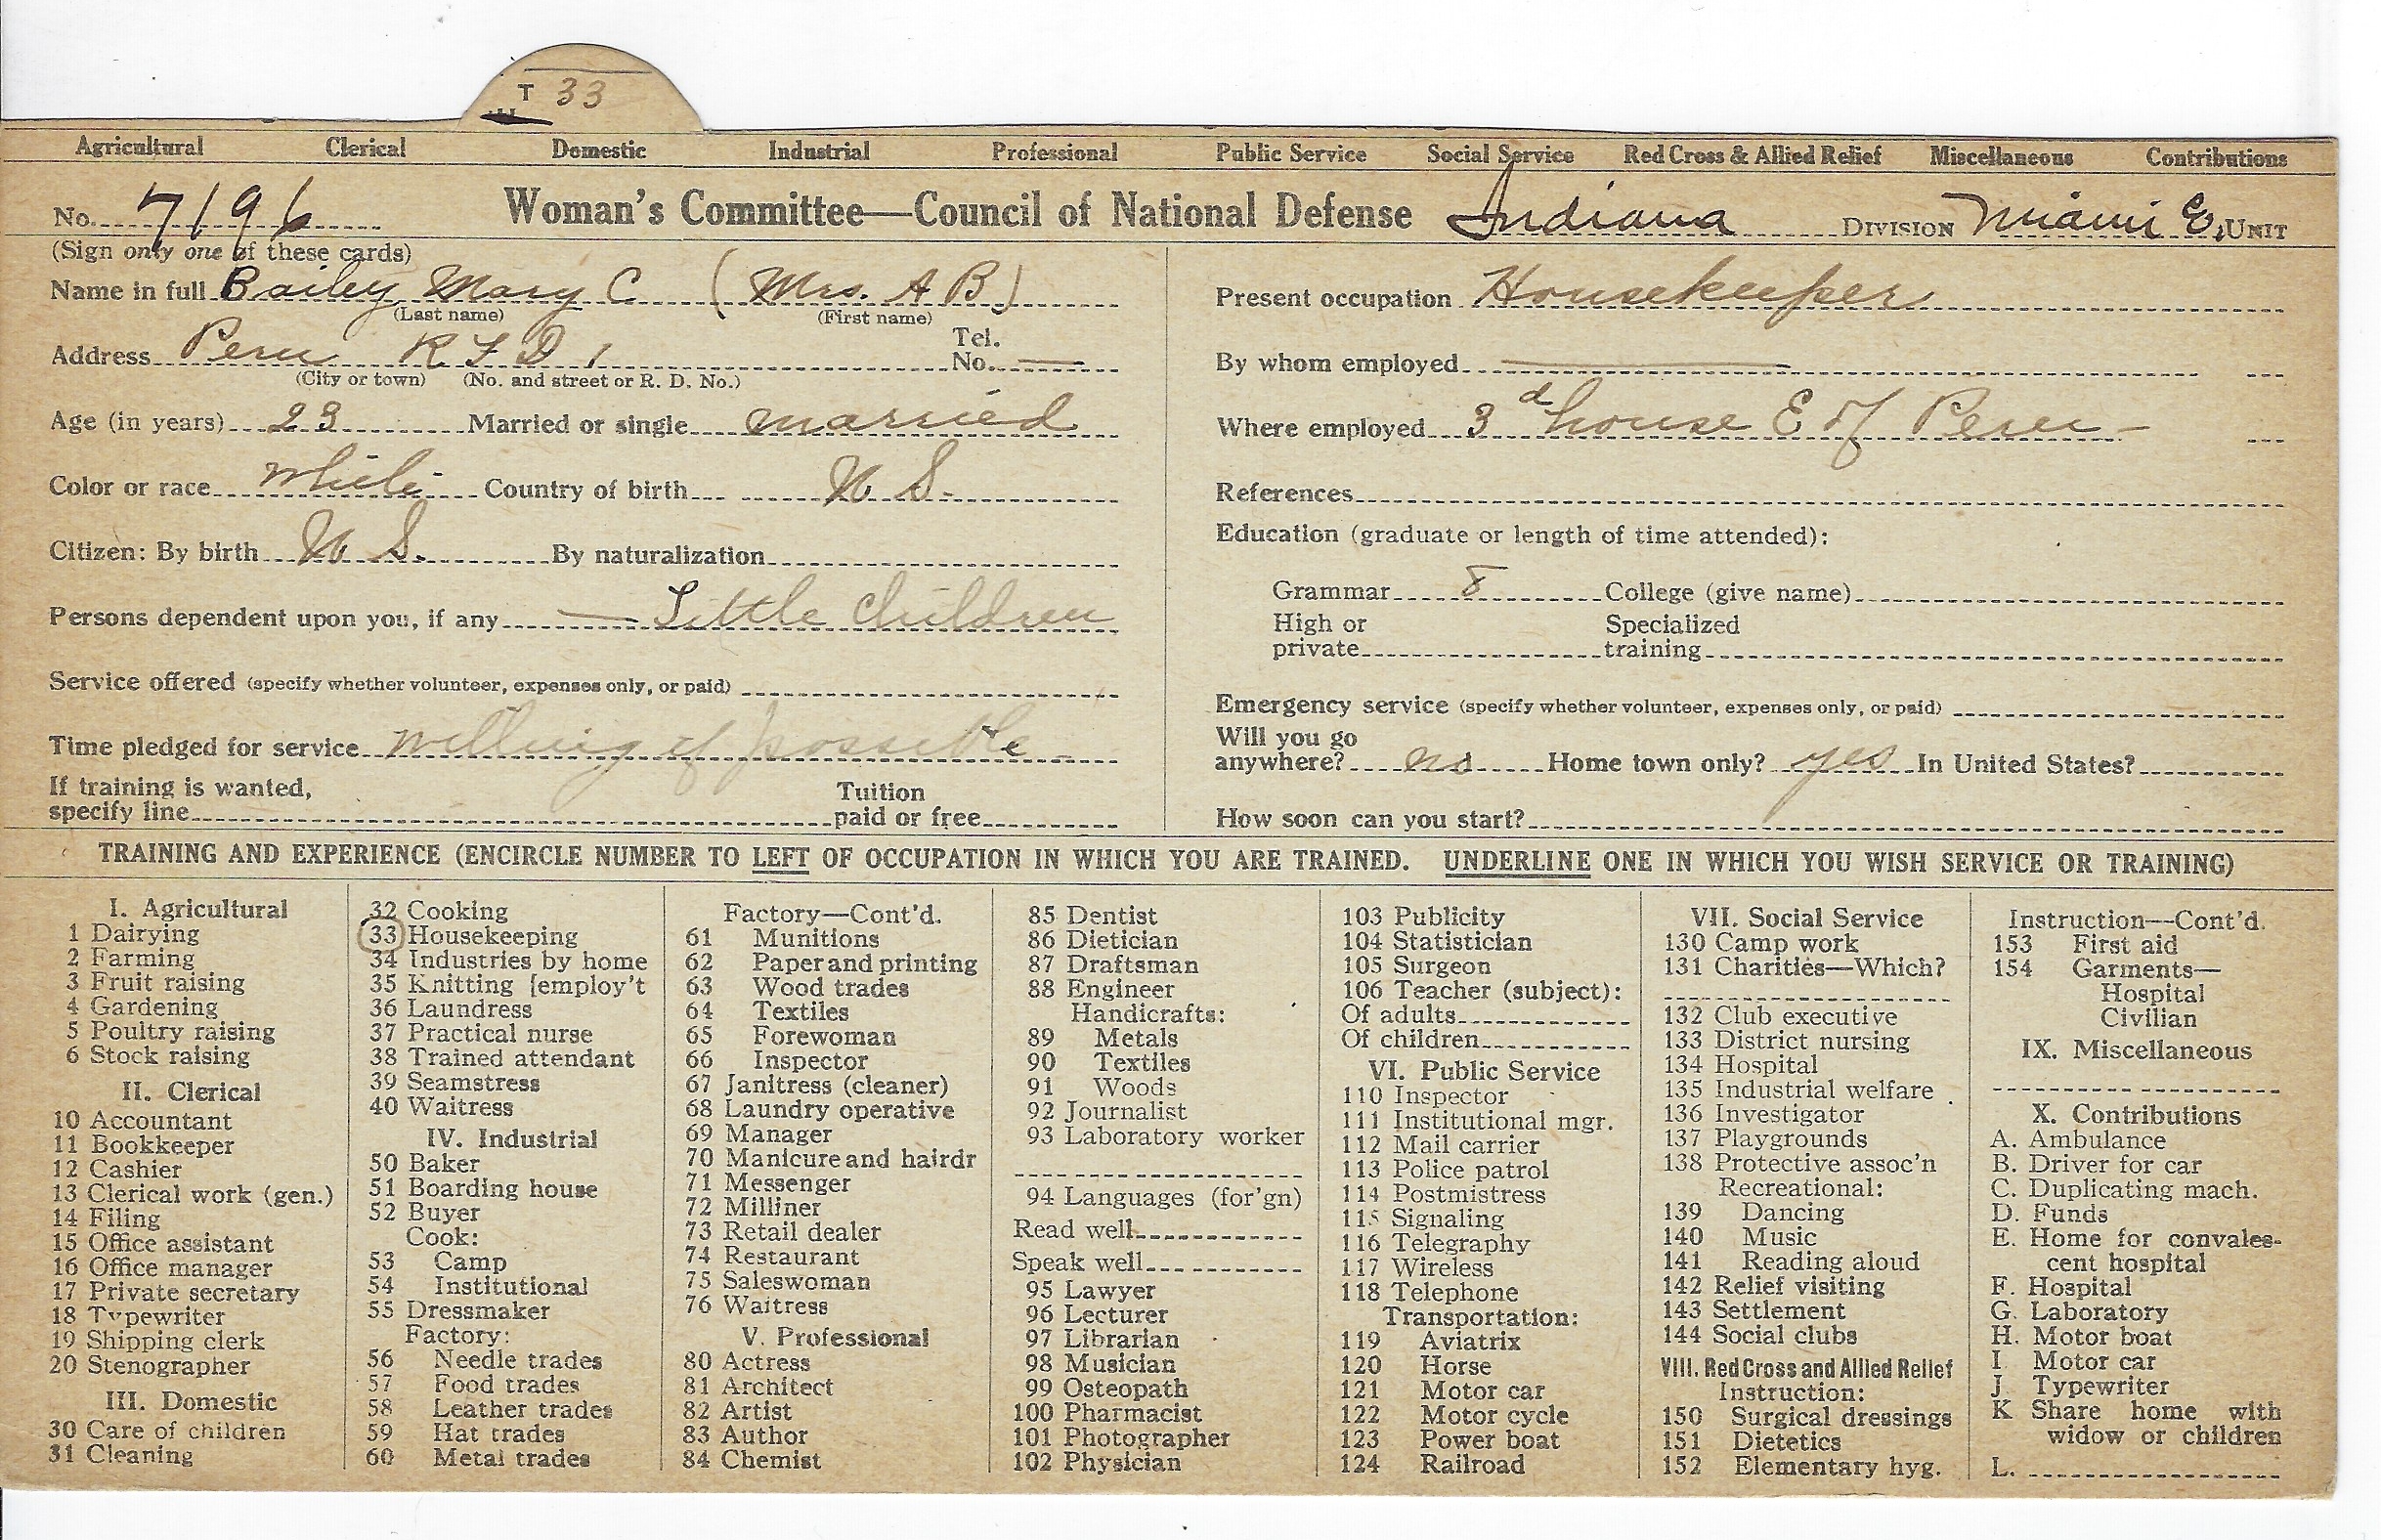 T 33
Agricultural Clerical Domestic Industrial Professional Public Service Social Service Red Cross & Allied Relief Miscellaneous Contributions
No. 7196 Woman's Committee—Council of National Defense Indiana DIVISION Miami Co. UNIT
(Sign only one of these cards)
Name in full Bailey Mary C (Mrs. A B)
(Last name) (First name)
Address Peru R F D 1 Tel. No. —
(City or town) (No. and street or R. D. No.)
Age (in years) 23 Married or single married
Color or race White Country of birth U S.
Citizen: By birth U S. By naturalization
Persons dependent upon you, if any — Little Children
Service offered (specify whether volunteer, expenses only, or paid)
Time pledged for service willing if possible
If training is wanted,
specify line Tuition paid or free
Present occupation Housekeeper
By whom employed —
Where employed 3d house E of Peru -
References
Education (graduate or length of time attended):
Grammar 8 College (give name)
High or private Specialized training
Emergency service (specify whether volunteer, expenses only, or paid)
Will you go
anywhere? no Home town only? yes In United States?
How soon can you start?
TRAINING AND EXPERIENCE (ENCIRCLE NUMBER TO LEFT OF OCCUPATION IN WHICH YOU ARE TRAINED. UNDERLINE ONE IN WHICH YOU WISH SERVICE OR TRAINING)
I. Agricultural
1 Dairying
2 Farming
3 Fruit raising
4 Gardening
5 Poultry raising
6 Stock raising
II. Clerical
10 Accountant
11 Bookkeeper
12 Cashier
13 Clerical work (gen.)
14 Filing
15 Office assistant
16 Office manager
17 Private secretary
18 Typewriter
19 Shipping clerk
20 Stenographer
III. Domestic
30 Care of children
31 Cleaning
32 Cooking
33 Housekeeping
34 Industries by home
35 Knitting [employ't
36 Laundress
37 Practical nurse
38 Trained attendant
39 Seamstress
40 Waitress
IV. Industrial
50 Baker
51 Boarding house
52 Buyer
Cook:
53 Camp
54 Institutional
55 Dressmaker
Factory:
56 Needle trades
57 Food trades
58 Leather trades
59 Hat trades
60 Metal trades
Factory—Cont'd.
61 Munitions
62 Paper and printing
63 Wood trades
64 Textiles
65 Forewoman
66 Inspector
67 Janitress (cleaner)
68 Laundry operative
69 Manager
70 Manicure and hairdr
71 Messenger
72 Milliner
73 Retail dealer
74 Restaurant
75 Saleswoman
76 Waitress
V. Professional
80 Actress
81 Architect
82 Artist
83 Author
84 Chemist
85 Dentist
86 Dietician
87 Draftsman
88 Engineer
Handicrafts:
89 Metals
90 Textiles
91 Woods
92 Journalist
93 Laboratory worker
94 Languages (for'gn)
Read well
Speak well
95 Lawyer
96 Lecturer
97 Librarian
98 Musician
99 Osteopath
100 Pharmacist
101 Photographer
102 Physician
103 Publicity
104 Statistician
105 Surgeon
106 Teacher (subject):
Of adults
Of children
VI. Public Service
110 Inspector
111 Institutional mgr.
112 Mail carrier
113 Police patrol
114 Postmistress
115 Signaling
116 Telegraphy
117 Wireless
118 Telephone
Transportation:
119 Aviatrix
120 Horse
121 Motor car
122 Motor cycle
123 Power boat
124 Railroad
VII. Social Service
130 Camp work
131 Charities—Which?
132 Club executive
133 District nursing
134 Hospital
135 Industrial welfare
136 Investigator
137 Playgrounds
138 Protective assoc'n
Recreational:
139 Dancing
140 Music
141 Reading aloud
142 Relief visiting
143 Settlement
144 Social clubs
VIII. Red Cross and Allied Relief
Instruction:
150 Surgical dressings
151 Dietetics
152 Elementary hyg.
Instruction—Cont'd.
153 First aid
154 Garments—
Hospital
Civilian
IX. Miscellaneous
X. Contributions
A. Ambulance
B. Driver for car
C. Duplicating mach.
D. Funds
E. Home for convales-
cent hospital
F. Hospital
G. Laboratory
H. Motor boat
I. Motor car
J. Typewriter
K Share home with
widow or children
L.